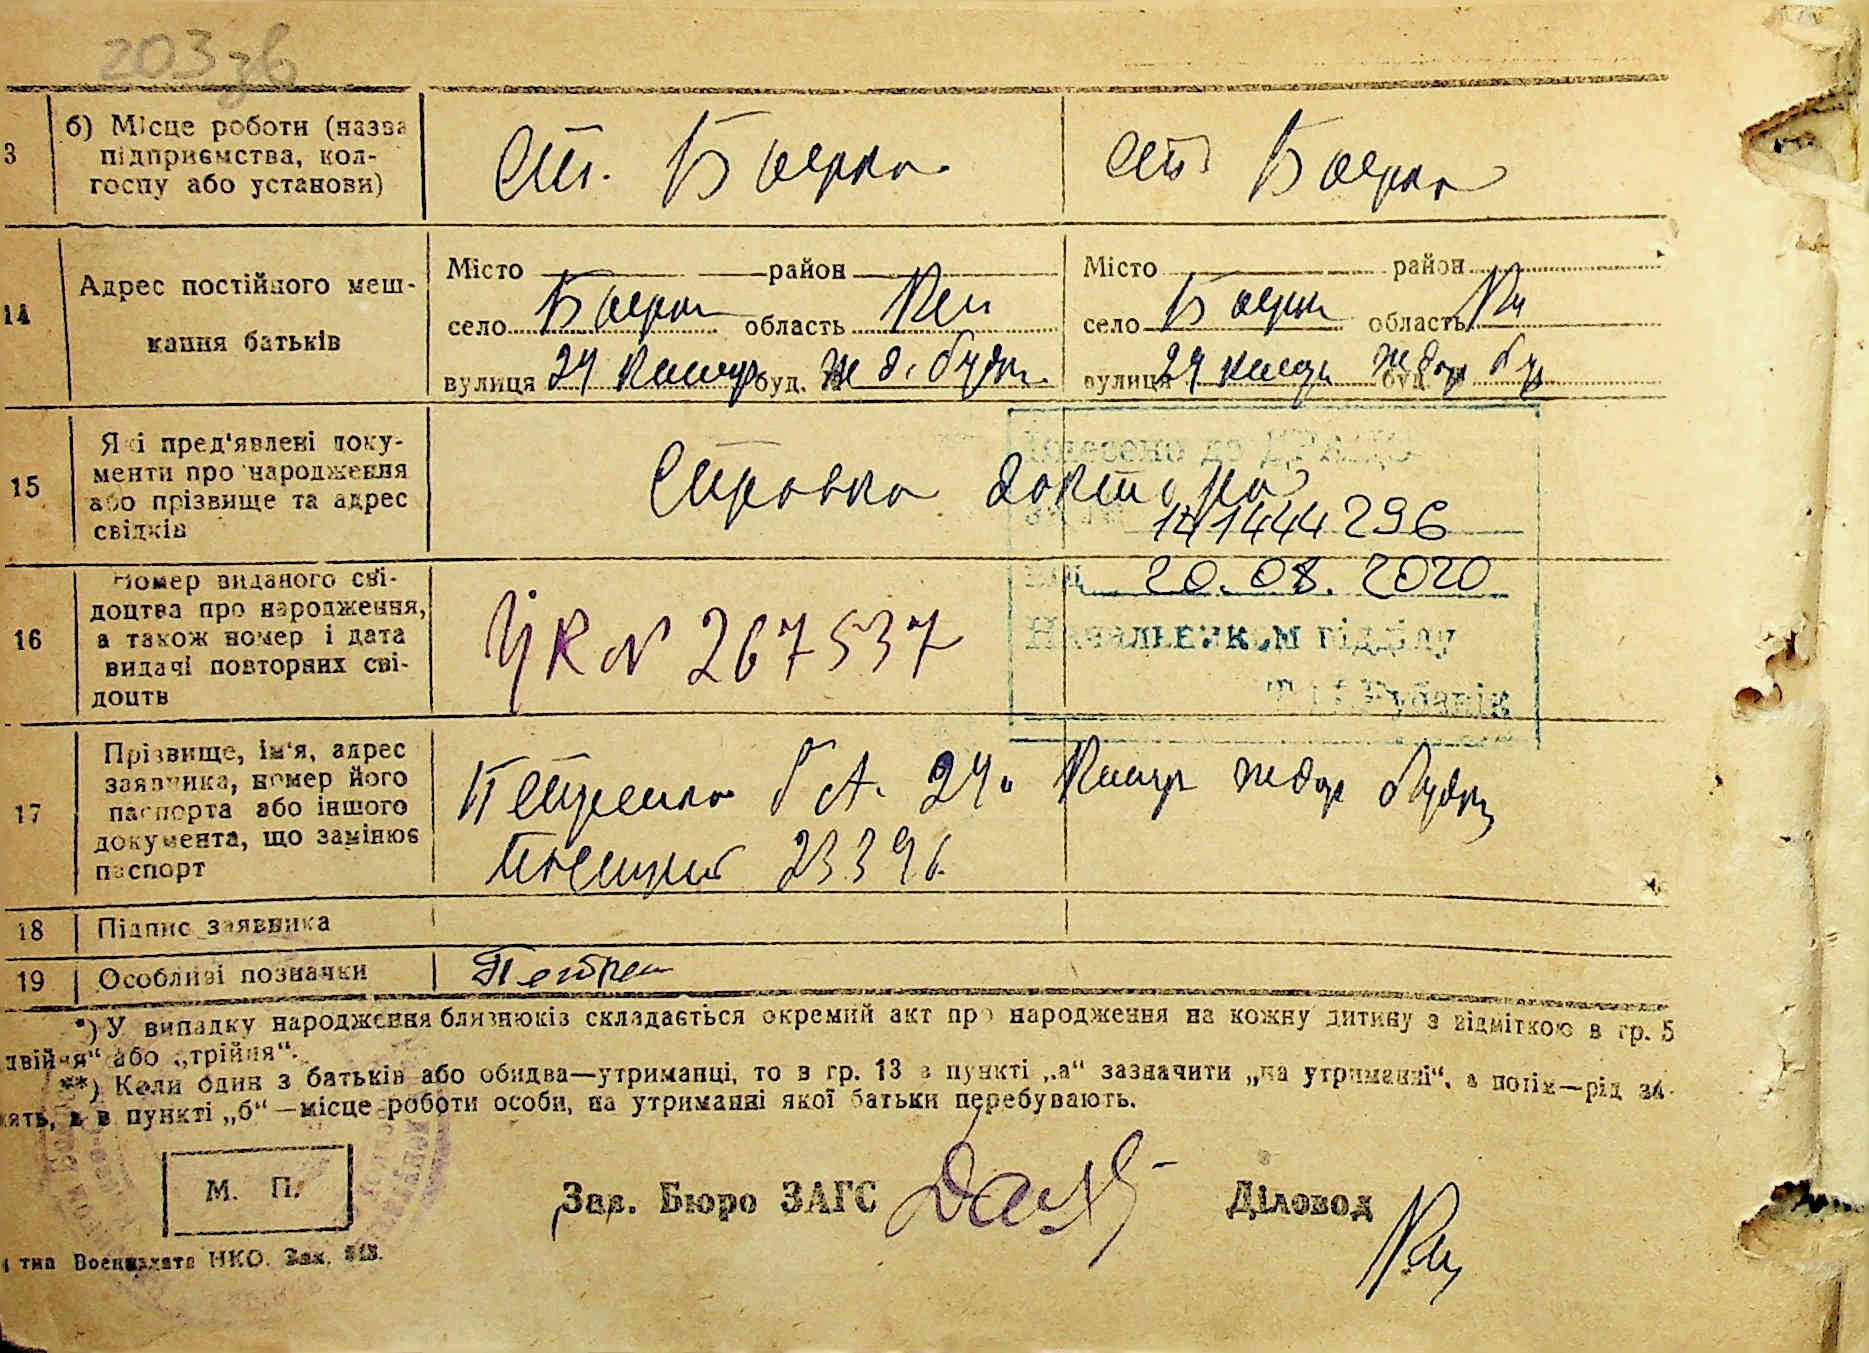 203 зв
3 б) Місце роботи (назва підприємства, колгоспу або установи) Ст. Боярка Ст. Боярка
14 Адрес постійного мешкання батьків
Місто район Місто район
село Боярка область Київ село Боярка область Ки
вулиця 24 буд. ж. д. будк. вулиця 24 буд. ж дор бу
15 Які пред'явлені документи про народження або прізвище та адрес свідків Справка доктора
Внесено до ДРАЦС
за № 141444296
Від 20.08.2020
Начальником відділу
16 Номер виданого свідоцтва про народження, а також номер і дата видачі повторних свідоцтв ЦК N 267537
17 Прізвище, ім'я, адрес заявника, номер його паспорта або іншого документа, що замінює паспорт Петренко 24 ждор будки
23396
18 Підпис заявника
19 Особливі позначки Петрен
*) У випадку народження близнюків складається окремий акт про народження на кожну дитину з відміткою в гр. 5
двійня“ або „трійня“.
**) Коли один з батьків або обидва—утриманці, то в гр. 13 в пункті „а“ зазначити „на утриманні“, а потім—рід за-
нять, а в пункті „б“—місце роботи особи, на утриманні якої батьки перебувають.
М. П.
Зав. Бюро ЗАГС Діловод
тип Воениздата НКО. Зак.